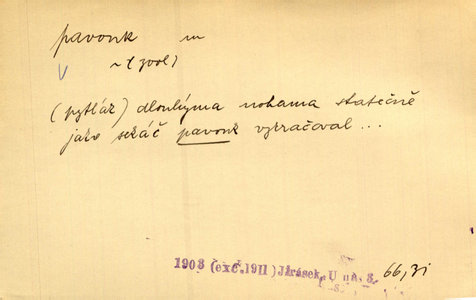 pavouk m
~ (zool)
(pytlák) dlouhýma nohama statečně
jako sekáč pavouk vykračoval ...
1903 (exc. 1911) Jirásek, U nás. 3. 66,31